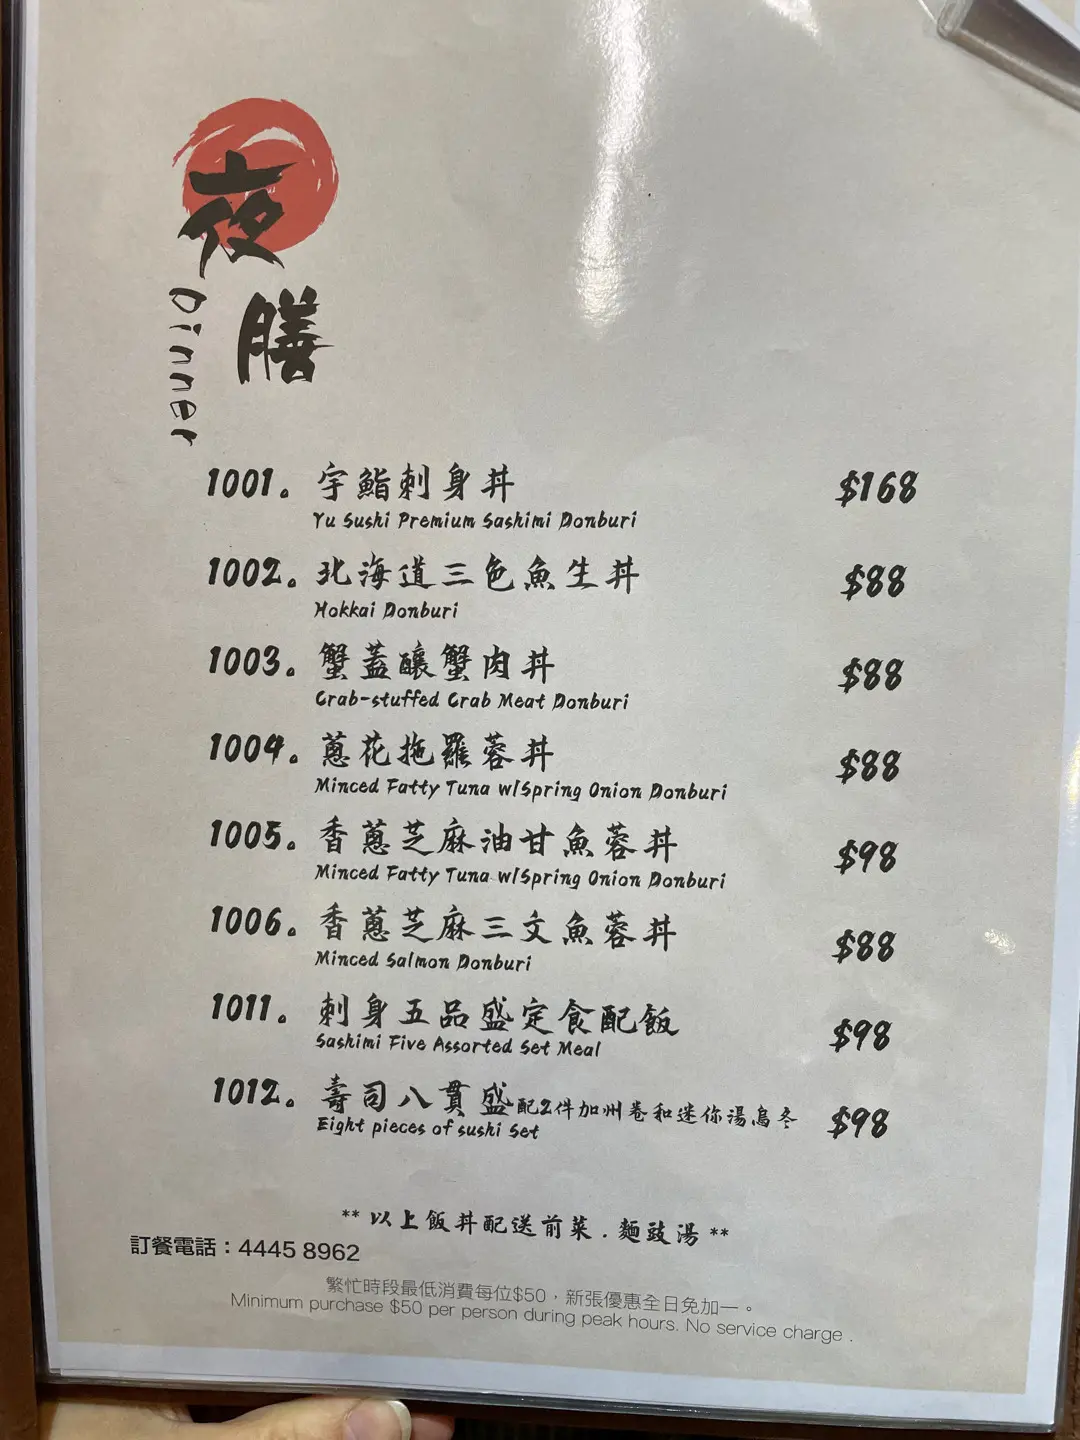 夜膳
Dinner
1001。 宇鮨刺身丼 $168
Yu Sushi Premium Sashimi Donburi
1002。 北海道三色魚生丼 $88
Hokkai Donburi
1003。 蟹蓋釀蟹肉丼 $88
Crab-stuffed Crab Meat Donburi
1004。 蔥花拖羅蓉丼 $88
Minced Fatty Tuna w/Spring Onion Donburi
1005。 香蔥芝麻油甘魚蓉丼 $98
Minced Fatty Tuna w/Spring Onion Donburi
1006。 香蔥芝麻三文魚蓉丼 $88
Minced Salmon Donburi
1011。 刺身五品盛定食配飯 $98
Sashimi Five Assorted Set Meal
1012。 壽司八貫盛配2件加州卷和迷你湯烏冬 $98
Eight pieces of sushi Set
** 以上飯丼配送前菜．麵豉湯 **
訂餐電話：4445 8962
繁忙時段最低消費每位$50，新張優惠全日免加一。
Minimum purchase $50 per person during peak hours. No service charge .